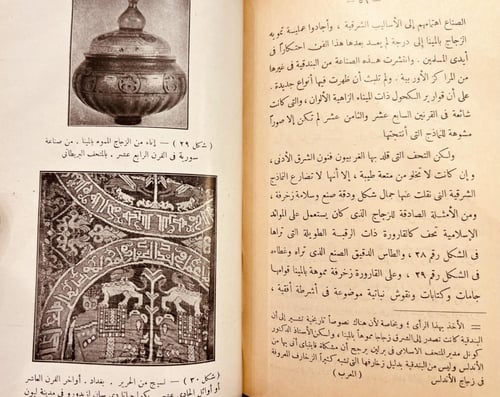 — ٥٩ —
الصناع اهتمامهم إلى الأساليب الشرقية ، وأجادوا عملية تمويه
الزجاج بالمينا إلى درجة لم يعد بعدها هذا الفن احتكاراً في
أيدى المسلمين . وانتشرت هذه الصناعة من البندقية فى غيرها
من المراكز الأوربية . ولم تلبث أن ظهرت فيها أنواع جديدة .
على أن قوارير الكحول ذات الميناء الزاهية الألوان ، والتى كانت
شائعة فى القرنين السابع عشر والثامن عشر لم تكن إلا صوراً
مشوهة للنماذج التى أنتجتها
ولكن التحف التى قلد بها الغربيون فنون الشرق الأدنى ،
وإن كانت لا تخلو من متعة طيبة ، إلا أنها لا تضارع النماذج
الشرقية التى نقلت عنها جمال شكل ودقة صنع وسلامة زخرفة ،
ومن الأمثلة الصادقة للزجاج الذى كان يستعمل على الموائد
الإسلامية تحف كالقارورة ذات الرقبة الطويلة التى تراها
فى الشكل رقم ٢٨ ، والطاس الدقيق الصنع الذى تراه وغطاءه
فى الشكل رقم ٢٩ ، وعلى القارورة زخرفة مموهة بالمينا قوامها
جامات وكتابات ونقوش نباتية موضوعة فى أشرطة أفقية ،
= الأخذ بهذا الرأى ؛ وبخاصة لأن هناك نصوصاً تاريخية تشير إلى أن
البندقية كانت تصدر إلى الشرق زجاجاً مموهاً بالمينا ، ولكن الأستاذ الدكتور
كونل مدير المتحف الاسلامى فى برلين يرجح أن
والأندلس وليس من البندقية بدليل زخارفها التى تشبه كثيراً الزخارف المعروفة
فى زجاج الأندلس (المعرب)
(شكل ٢٩) — إناء من الزجاج المموه بالمينا . من صناعة
سورية فى القرن الرابع عشر . بالمتحف البريطانى
(شكل ٣٠) — نسيج من الحرير . بغداد . أواخر القرن العاشر
أو أوائل الحادى عشر . فى مدينة ليون